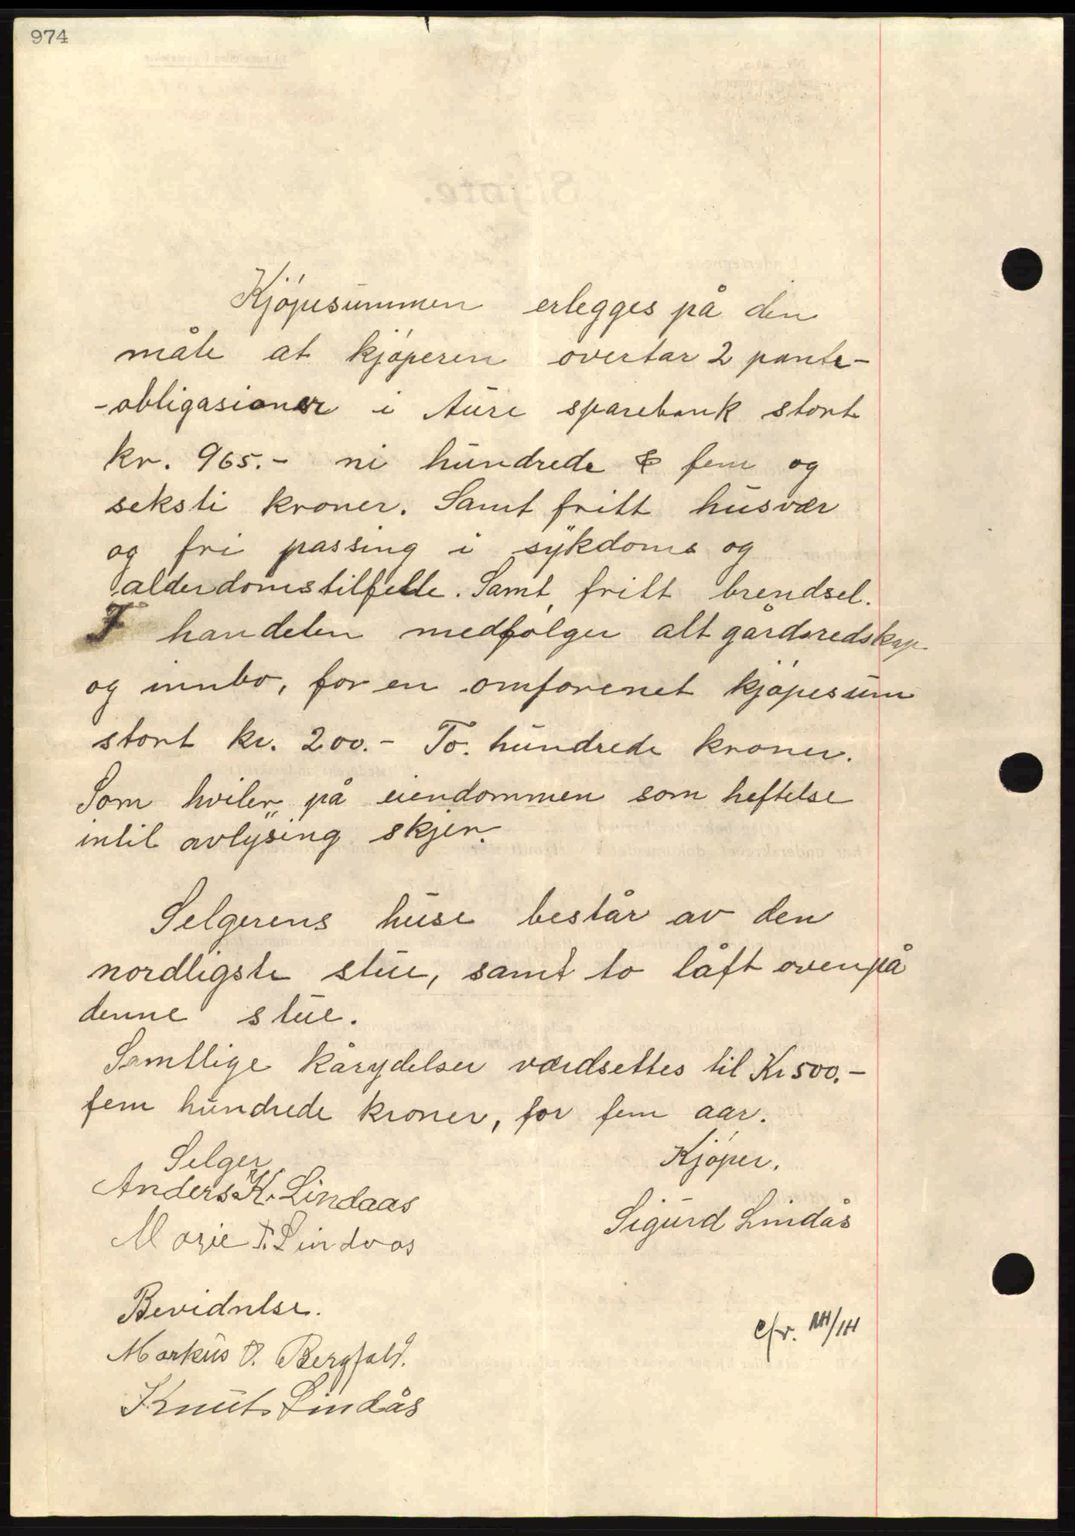 974
Kjøpesummen erlegges på den
måte at kjøperen overtar 2 pante-
-obligasioner i Aure sparebank stort
kr. 965.- ni hundrede & fem og
seksti kroner. Samt fritt husvær
og fri passing i sykdoms og
alderdomstilfelle. Samt fritt brendsel.
I handelen medfølger alt gårdsredskap
og innbo, for en omforenet kjøpesum
stort kr. 200.- To. hundrede kroner.
Som hviler på eiendommen som heftelse
intil avlysing skjer.
Selgerens huse består av den
nordligste stue, samt to låft ovenpå
denne stue.
Samtlige kårydelser værdsettes til Kr 500.-
fem hundrede kroner, for fem aar.
Selger
Kjøper.
Anders K. Lindaas
Sigurd Lindås
Marie T. Lindaas
Bevidnelse.
e/r. MH/IH
Markus O. Bergfald.
Knut Lindås